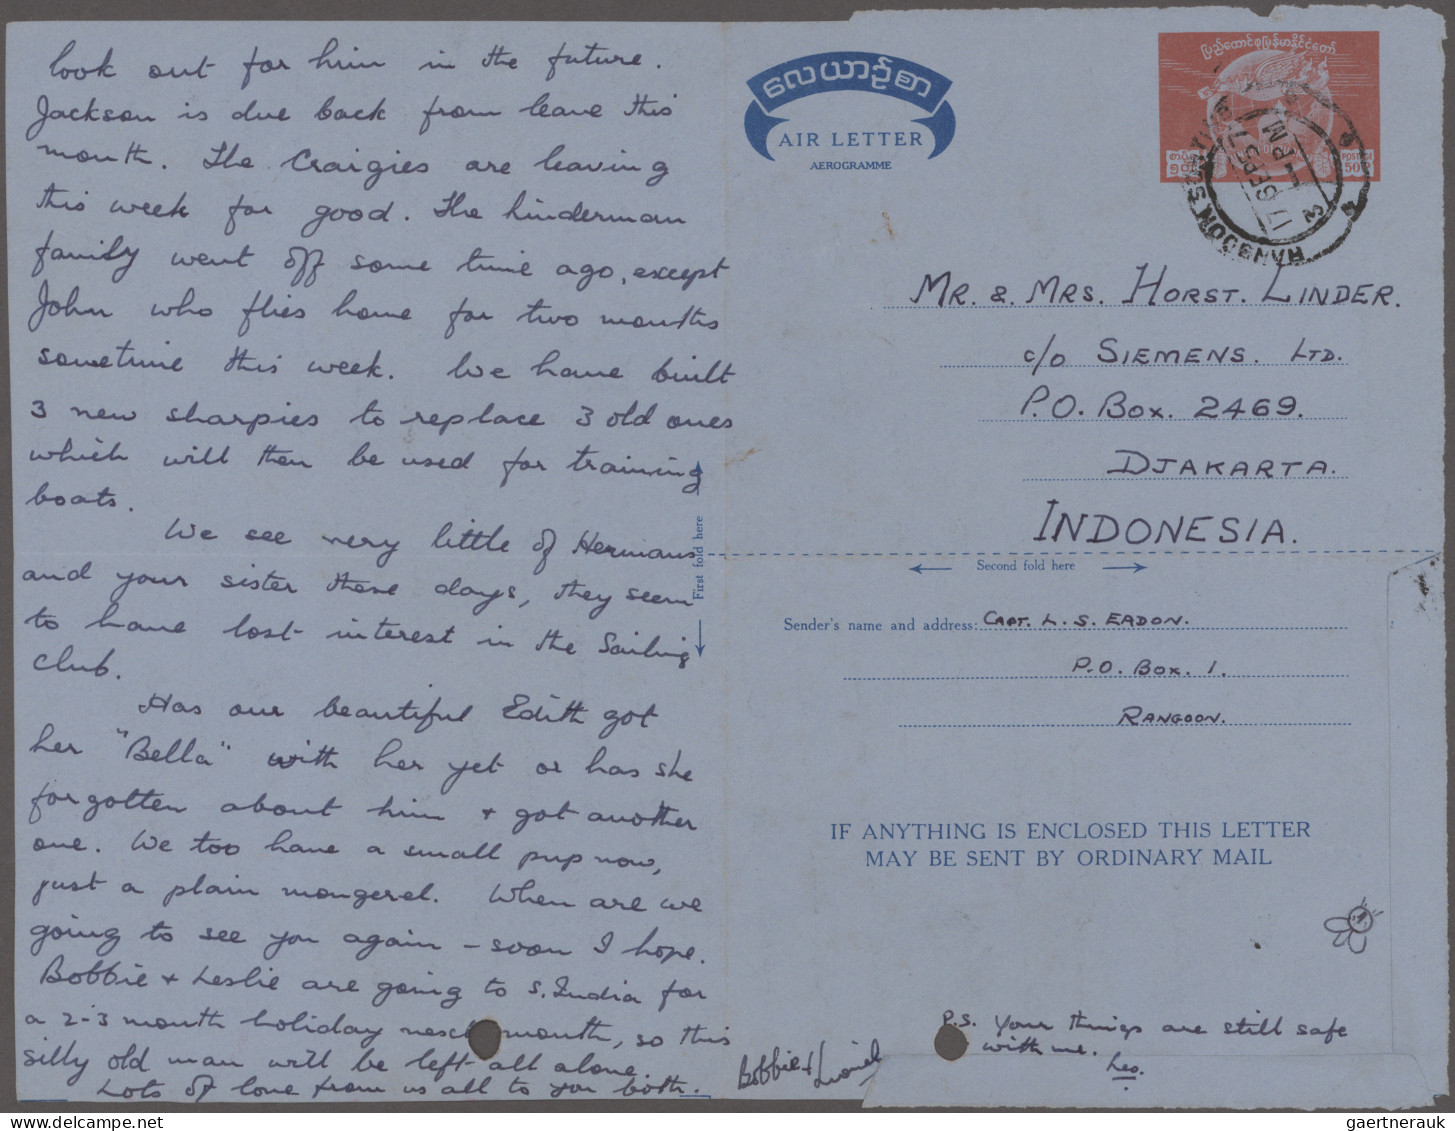 look out for him in the future.
Jackson is due back from leave this
month. The Craigies are leaving
this week for good. The hinderman
family went off some time ago, except
John who flies home for two months
sometime this week. We have built
3 new sharpies to replace 3 old ones
which will then be used for training
boats.
We see very little of Hermans
and your sister these days, they seem
to have lost interest in the Sailing
club.
Has our beautiful Edith got
her "Bella" with her yet or has she
forgotten about him + got another
one. We too have a small pup now,
just a plain mongerel. When are we
going to see you again - soon I hope.
Bobbie + Leslie are going to S. India for
a 2-3 month holiday next month, so this
silly old man will be left all alone.
Lots of love from us all to you both.
Bobbie + Lionel
First fold here
လေယာဉ်စာ
AIR LETTER
AEROGRAMME
ပြည်ထောင်စုမြန်မာနိုင်ငံတော်
POSTAGE
50
RANGOON
17 SEP 57
1 PM
MR. & MRS. HORST. LINDER.
c/o SIEMENS. LTD.
P.O. BOX. 2469.
DJAKARTA.
INDONESIA.
Second fold here
Sender's name and address: CAPT. L. S. EADON.
P.O. BOX. 1.
RANGOON.
IF ANYTHING IS ENCLOSED THIS LETTER
MAY BE SENT BY ORDINARY MAIL
P.S. Your things are still safe
with me.
Leo.
gaertnerauk